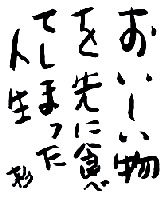 おいしい物
を先に食べ
てしまった
人生
彩